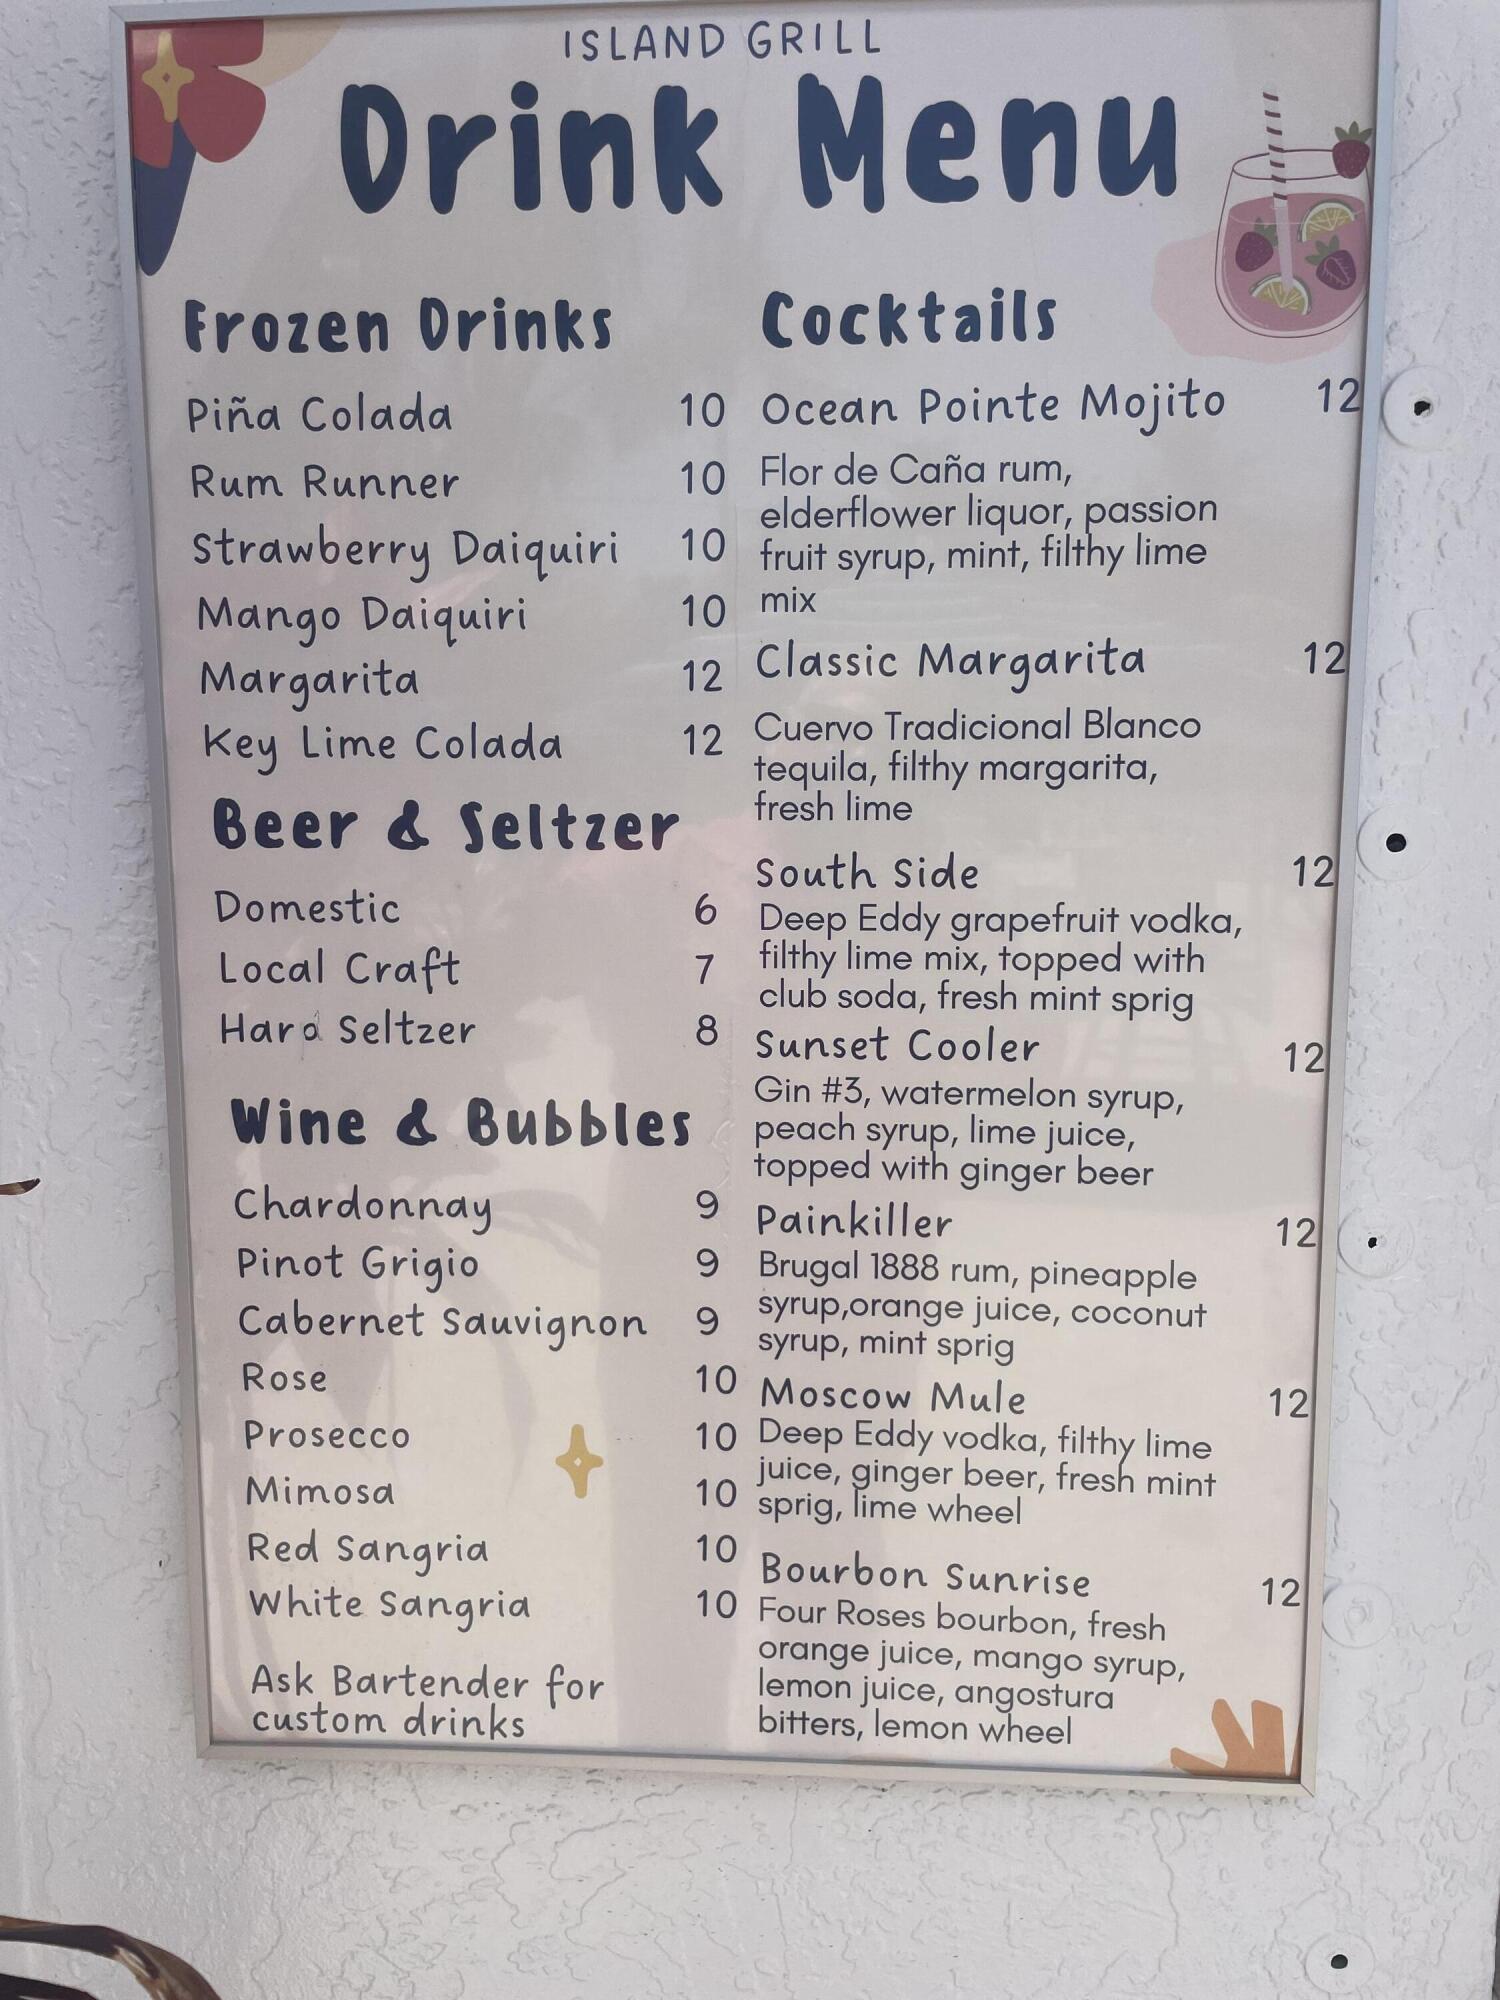 ISLAND GRILL
Drink Menu
Frozen Drinks
Piña Colada 10
Rum Runner 10
Strawberry Daiquiri 10
Mango Daiquiri 10
Margarita 12
Key Lime Colada 12
Beer & Seltzer
Domestic 6
Local Craft 7
Hard Seltzer 8
Wine & Bubbles
Chardonnay 9
Pinot Grigio 9
Cabernet Sauvignon 9
Rose 10
Prosecco 10
Mimosa 10
Red Sangria 10
White Sangria 10
Ask Bartender for
custom drinks
Cocktails
Ocean Pointe Mojito 12
Flor de Caña rum,
elderflower liquor, passion
fruit syrup, mint, filthy lime
mix
Classic Margarita 12
Cuervo Tradicional Blanco
tequila, filthy margarita,
fresh lime
South Side 12
Deep Eddy grapefruit vodka,
filthy lime mix, topped with
club soda, fresh mint sprig
Sunset Cooler 12
Gin #3, watermelon syrup,
peach syrup, lime juice,
topped with ginger beer
Painkiller 12
Brugal 1888 rum, pineapple
syrup,orange juice, coconut
syrup, mint sprig
Moscow Mule 12
Deep Eddy vodka, filthy lime
juice, ginger beer, fresh mint
sprig, lime wheel
Bourbon Sunrise 12
Four Roses bourbon, fresh
orange juice, mango syrup,
lemon juice, angostura
bitters, lemon wheel